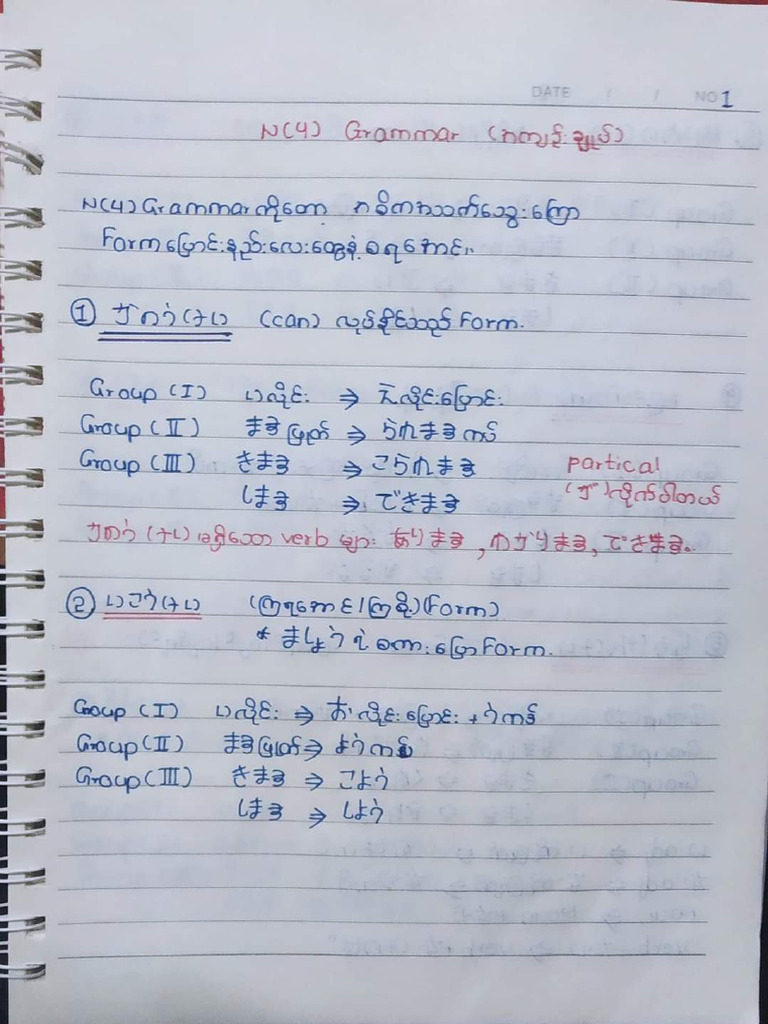 DATE / / NO 1
N(4) Grammar (အကျဉ်းချုပ်)
N(4) Grammar ကိုတော့ အဓိကအသက်သွေးကြော
Form ပြောင်းနည်းလေးတွေနဲ့ စရအောင်။
① かのう(けい) (can) လုပ်နိုင်သည့် Form.
Group (I) いလိုင်း ⇒ えလိုင်းပြောင်း
Group (II) ますဖြုတ် ⇒ られますကပ်
Group (III) きます ⇒ こられます partical
します ⇒ できます (が) လိုက်ပါတယ်
かのう (けい) မရှိသော verb များ あります, わかります, できます.
② いこう(けい) (ကြရအောင်/ကြစို့)(Form)
* ましょう ရဲ့ စကားပြော Form.
Group (I) いလိုင်း ⇒ おလိုင်းပြောင်း + うကပ်
Group (II) ますဖြုတ် ⇒ ようကပ်
Group (III) きます ⇒ こよう
します ⇒ しよう